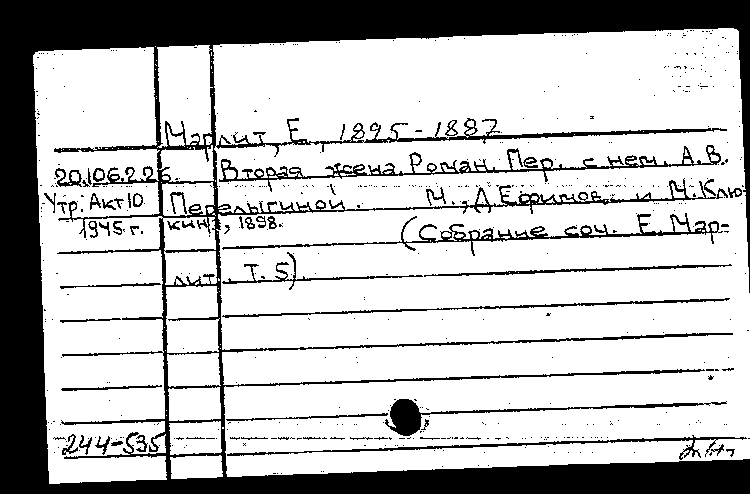 Марлит, Е., 1895-1887
20.106.2.26. Вторая жена. Роман. Пер. с нем. А.В.
Утр. Акт 10 Перелыгиной. М., Д. Ефимов и М. Клю-
1945 г. кин, 1898. (Собрание соч. Е. Мар-
лит. Т. 5).
244-535